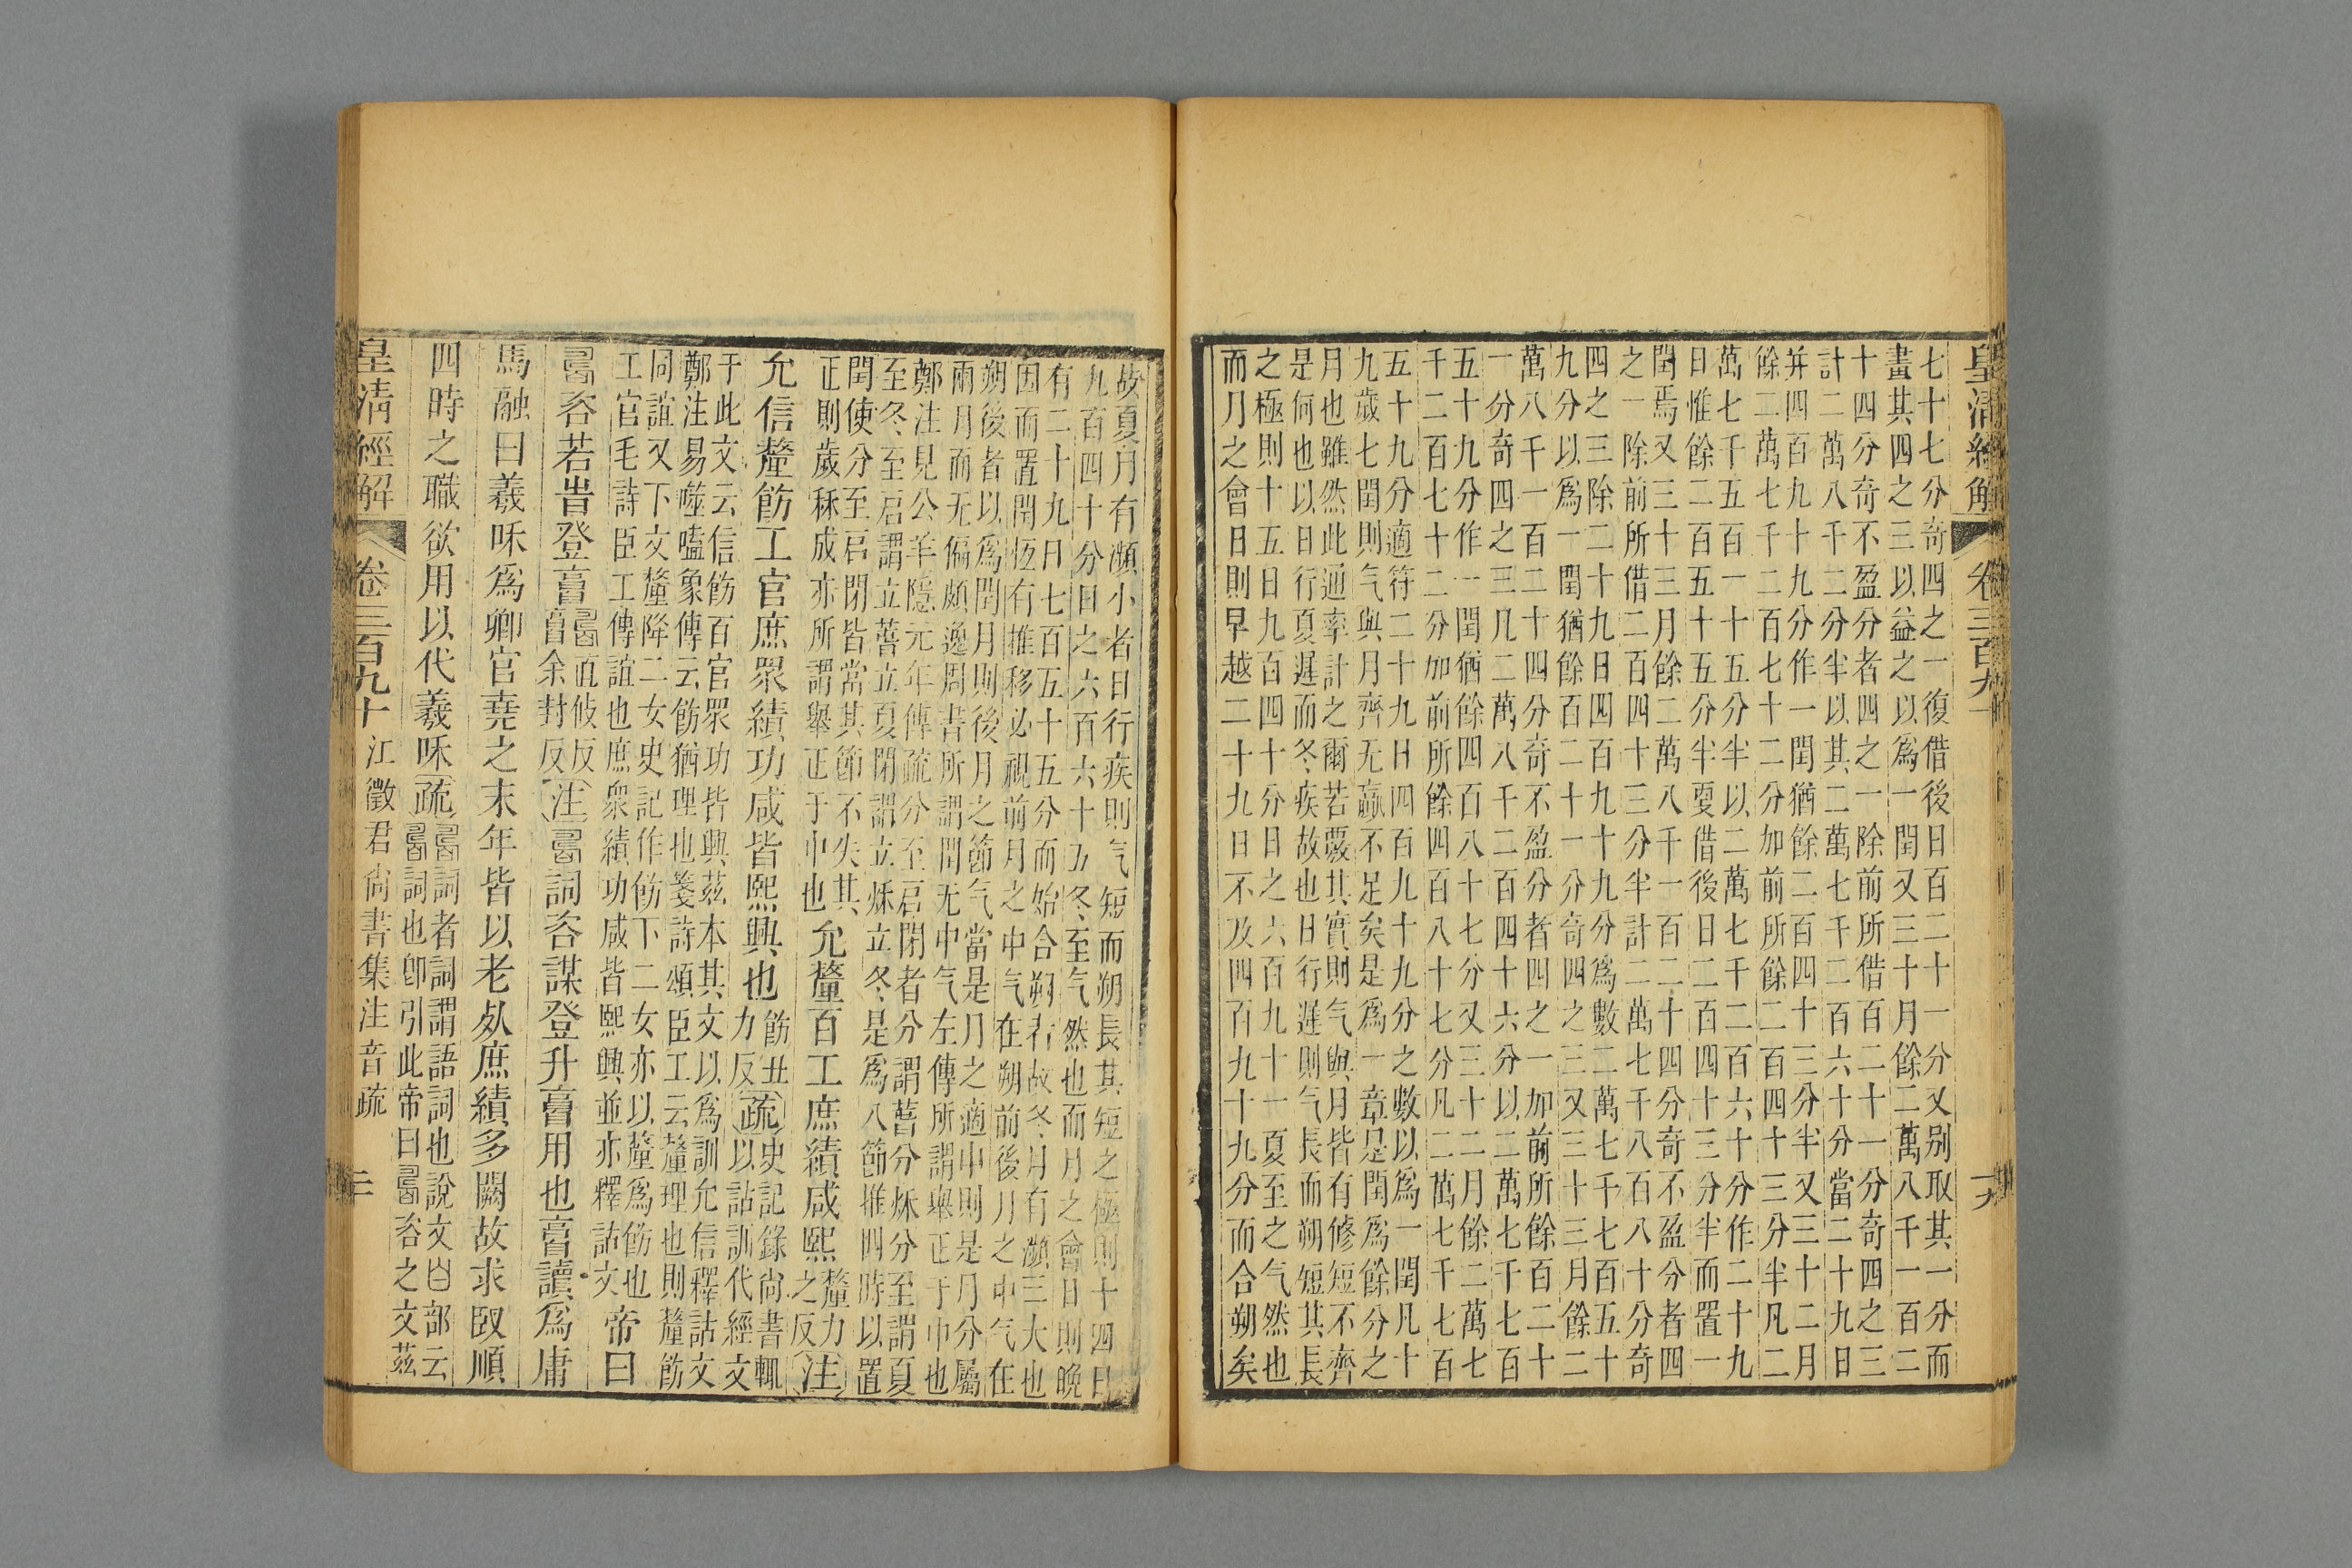 皇清經解 卷三百九十
七十七分奇四之一復借後日百二十一分又別取其一分而
畫其四之三以益之以爲一閏又三十月餘二萬八千一百二
十四分奇不盈分者四之一除前所借百二十一分奇四之三
計二萬八千二分半以其二萬七千二百六十分當二十九日
并四百九十九分作一閏猶餘二百四十三分半又三十二月
餘二萬七千二百七十二分加前所餘二百四十三分半凡二
萬七千五百一十五分半以二萬七千二百六十分作二十九
日惟餘二百五十五分半更借後日二百四十三分半而置一
閏焉又三十三月餘二萬八千一百二十四分奇不盈分者四
之一除前所借二百四十三分半計二萬七千八百八十分奇
四之三除二十九日四百九十九分爲數二萬七千七百五十
九分以爲一閏猶餘百二十一分奇四之三又三十三月餘二
萬八千一百二十四分奇不盈分者四之一加前所餘百二十
一分奇四之三凡二萬八千二百四十六分以二萬七千七百
五十九分作一閏猶餘四百八十七分又三十二月餘二萬七
千二百七十二分加前所餘四百八十七分凡二萬七千七百
五十九分適符二十九日四百九十九分之數以爲一閏凡十
九歲七閏則气與月齊无贏不足矣是爲一章是閏爲餘分之
月也雖然此通率計之爾若覈其實則气與月皆有修短不齊
是何也以日行夏遲而冬疾故也日行遲則气長而朔短其長
之極則十五日九百四十分日之六百九十一夏至之气然也
而月之會日則早越二十九日不及四百九十九分而合朔矣
故夏月有瀕小者日行疾則气短而朔長其短之極則十四日
九百四十分日之六百六十五冬至气然也而月之會日則晚
有二十九日七百五十五分而始合朔者故冬月有瀕三大也
因而置閏恆有推移必視前月之中气在朔前後月之中气在
朔後者以爲閏月則後月之節气當是月之適中則是月分屬
兩月而无偏頗逸周書所謂閏无中气左傳所謂舉正于中也
鄭注見公羊隱元年傳疏分至启閉者分謂萅分秌分至謂夏
至冬至启謂立萅立夏閉謂立秌立冬是爲八節推四時以置
閏使分至启閉皆當其節不失其
正則歲秝成亦所謂舉正于中也
允釐百工庶績咸熙 釐力之反 注
允信釐飭工官庶眾績功咸皆熙興也 飭丑力反 疏
史記錄尚書輒
以詁訓代經文
于此文云信飭百官眾功皆興茲本其文以爲訓允信釋詁文
鄭注易噬嗑象傳云飭猶理也箋詩頌臣工云釐理也則釐飭
同誼又下文釐降二女史記作飭下二女亦以釐爲飭也
工官毛詩臣工傳誼也庶眾績功咸皆熙興並亦釋詁文
帝曰
𠷎咨若旹登 𠷎直攸反 余封反 注 𠷎詞咨謀登升 用也 讀爲庸
馬融曰羲咊爲卿官堯之末年皆以老𣦸庶績多闕故求臤順
四時之職欲用以代羲咊 疏
𠷎詞者詞謂語詞也說文白部云
𠷎詞也卽引此帝曰𠷎咨之文茲
皇清經解 卷三百九十 江徵君尚書集注音疏 二